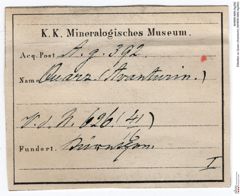 K. K. Mineralogisches Museum.
Acq. Post A. g. 392.
Nam Quarz (Avanturin.)
V. d. N. 626 (4)
Fundort.
I